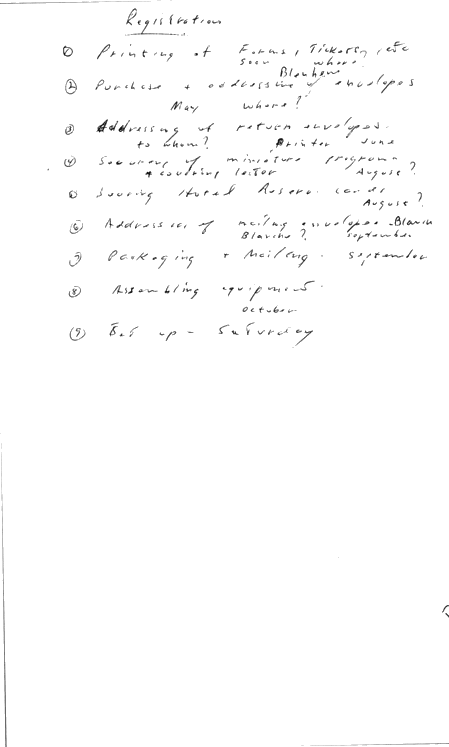 Registration
① Printing of Forms, Tickets, etc
soon where
② Purchase + addressing of envelopes
May where?
③ Addressing of return envelopes.
to whom? Printer June
④ Securing of miniature program
+ covering letter August?
⑤ Securing Hotel Reserv. cards
August?
⑥ Addressing of mailing envelopes - Blanch
Blanche? September
⑦ Packaging + Mailing - September
⑧ Assembling equipment.
October
⑨ Set up - Saturday